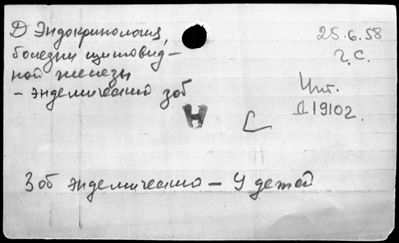 Д Эндокринология,
болезни щитовид-
ной железы
- эндемический зоб
25.6.58
г.С.
Чит.
Д 19102.
Н
Зоб эндемический - У детей